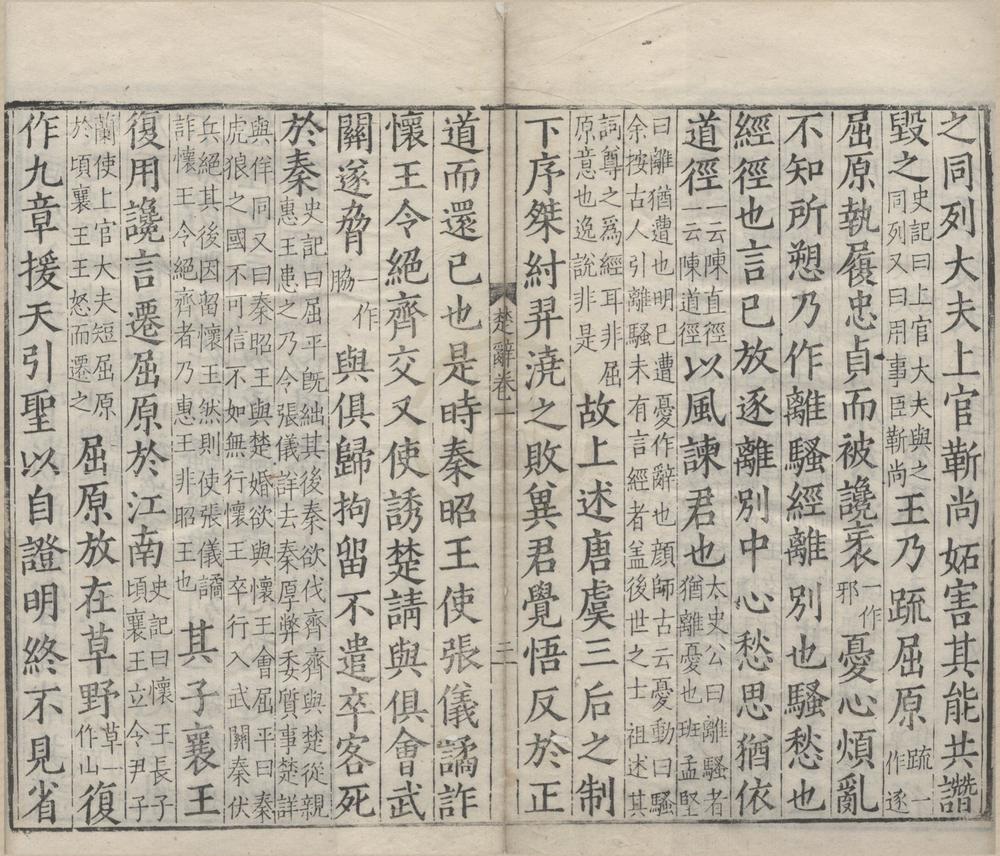 之同列大夫上官靳尚妬害其能共譖
毀之史記曰上官大夫與之同列又曰用事臣靳尚王乃疏屈原疏一作逐
屈原執履忠貞而被讒衺一作邪憂心煩亂
不知所愬乃作離騷經離別也騷愁也
經徑也言已放逐離別中心愁思猶依
道徑一云陳直徑一云陳道徑以風諫君也太史公曰離騷者猶離憂也班孟堅
曰離猶遭也明已遭憂作辭也顔師古云憂動曰騷
余按古人引離騷未有言經者盖後世之士祖述其
詞尊之爲經耳非屈原意也逸說非是故上述唐虞三后之制
下序桀紂羿澆之敗兾君覺悟反於正
楚辭卷一 三
道而還已也是時秦昭王使張儀譎詐
懷王令絕齊交又使誘楚請與俱會武
關遂脅一作脇與俱歸拘留不遣卒客死
於秦史記曰屈平旣絀其後秦欲伐齊齊與楚從親惠王患之乃令張儀詳去秦厚弊委質事楚詳
與佯同又曰秦昭王與楚婚欲與懷王會屈平曰秦
虎狼之國不可信不如無行懷王卒行入武關秦伏
兵絕其後因留懷王然則使張儀譎詐懷王令絕齊者乃惠王非昭王也其子襄王
復用讒言遷屈原於江南史記曰懷王長子頃襄王立令尹子
蘭使上官大夫短屈原於頃襄王王怒而遷之屈原放在草野草一作山復
作九章援天引聖以自證明終不見省